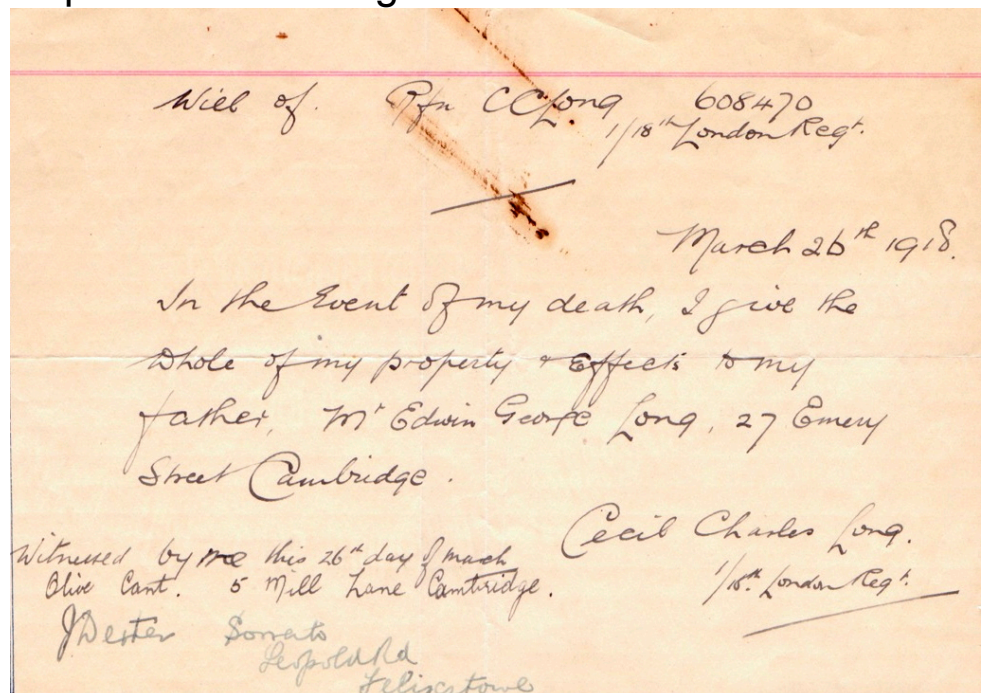 Will of. Rfn CCLong 608470
1/18th London Regt.
March 26th 1918.
In the Event of my death, I give the
whole of my property & Effects to my
father, Mr Edwin George Long, 27 Emery
Street Cambridge.
Cecil Charles Long.
1/18th London Regt.
Witnessed by me this 26th day of March
Olive Cant. 5 Mill Lane Cambridge.
J Dexter
Leopold Rd
Felixstowe